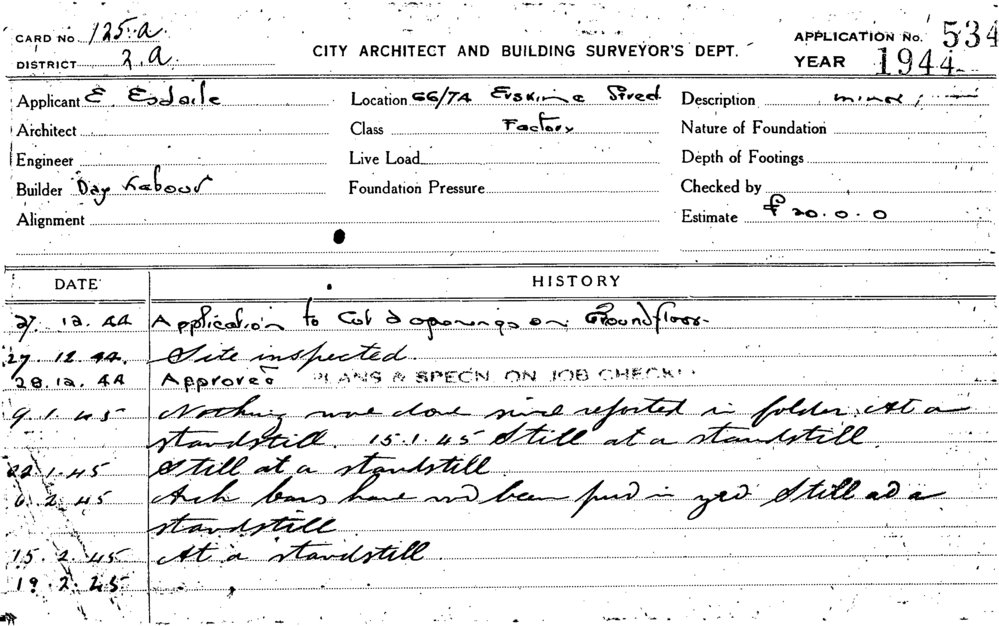 CARD No 125.a
DISTRICT 2.a
CITY ARCHITECT AND BUILDING SURVEYOR'S DEPT.
APPLICATION No. 534
YEAR 1944
Applicant E Esdaile
Location 66/74 Erskine Street
Description minor
Architect
Class Factory
Nature of Foundation
Engineer
Live Load
Depth of Footings
Builder Day Labour
Foundation Pressure
Checked by
Alignment
Estimate £ 20.0.0
DATE HISTORY
27.12.44 Application to Cut 2 openings on Groundfloor
27.12.44. Site inspected.
28.12.44 Approved PLANS & SPECN. ON JOB CHECK
9.1.45 Nothing more done since reported in folder. At a
standstill. 15.1.45 Still at a standstill.
22.1.45 Still at a standstill
6.2.45 Arch bars have not been put in yet. Still at a
standstill
15.2.45 At a standstill.
19.2.45 " "